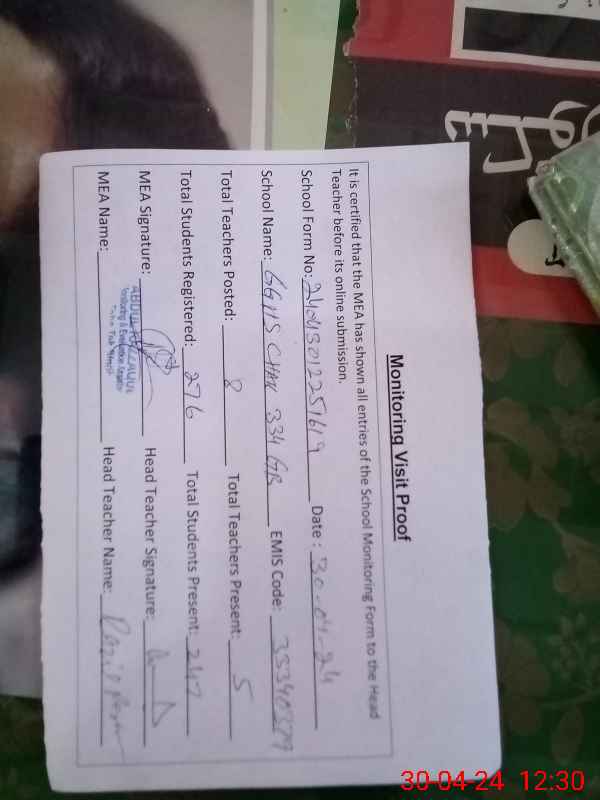 Monitoring Visit Proof
It is certified that the MEA has shown all entries of the School Monitoring Form to the Head
Teacher before its online submission.
School Form No: 24043012251619 Date: 30-04-24
School Name: GGHS CHAK 334 GB EMIS Code: 35340379
Total Teachers Posted: 8 Total Teachers Present: 5
Total Students Registered: 276 Total Students Present: 247
MEA Signature: Head Teacher Signature:
MEA Name: Head Teacher Name:
ABDUL RAZZAQUE
Monitoring & Evaluation
Toba Tek Singh
30-04-24 12:30